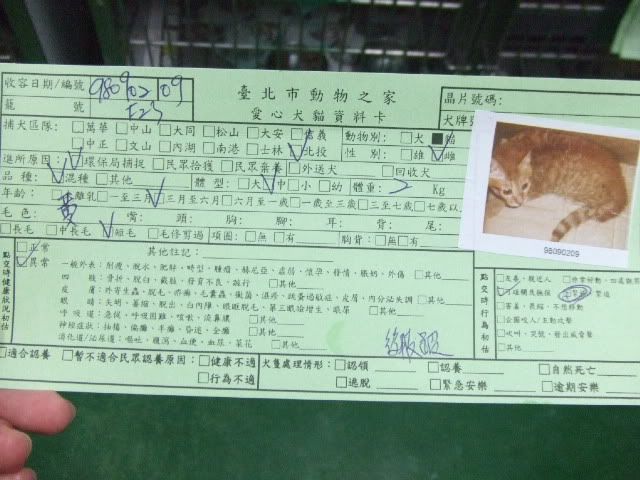 收容日期/編號 980902 09
臺北市動物之家
晶片號碼:
籠 號 E23
愛心犬貓資料卡
犬牌號
捕犬區隊: □萬華 □中山 □大同 □松山 □大安 □信義
動物別: □犬 ■貓
□中正 □文山 □內湖 □南港 □士林 □北投
性 別: □雄 □雌
進所原因: □環保局捕捉 □民眾拾獲 □民眾棄養 □外送犬 □回收犬
品 種: □混種 □其他
體 型: □大 □中 □小 □幼 體重: 2 Kg
年齡: □離乳 □一至三月 □三月至六月 □六月至一歲 □一歲至三歲 □三至七歲 □七歲以
毛 色: 黃 嘴: 頭: 胸: 腳: 耳: 背: 尾:
□長毛 □中長毛 □短毛 □毛修剪過 項圈: □無 □有 胸背: □無 □有
98090209
點交時健康狀況初估
□正常
□異常
其他註記:
一般外表: 削瘦、脫水、肥胖、畸型、腫瘤、赫尼亞、虛弱、懷孕、發情、脹奶、外傷 □其他
四 肢: 骨折、脫臼、截肢、發育不良、跛行 □其他
皮 膚: 外寄生蟲、脫毛、疥癬、毛囊蟲、黴菌、濕疹、跳蚤過敏症、皮屑、內分泌失調 □其他
眼 睛: 失明、萎縮、脫出、白內障、眼瞼脫毛、第三眼瞼增生、眼屎 □其他
呼 吸 道: 急促、呼吸困難、咳嗽、流鼻膿 □其他
神經症狀: 抽搐、偏癱、半癱、昏迷、全癱 □其他
消化道/泌尿道: 嘔吐、腹瀉、血便、血尿、菜花 □其他
點交時行為初估
□友善、親近人
□可隔欄長撫摸
□害羞、畏縮、不想移動
□企圖咬人/主動攻擊
□吠叫、哭號、發出威脅聲
□其他
□適合認養 □暫不適合民眾認養原因: □健康不適
□行為不適
犬隻處理情形: □認領 □認養 □自然死亡
□逃脫 □緊急安樂 □逾期安樂